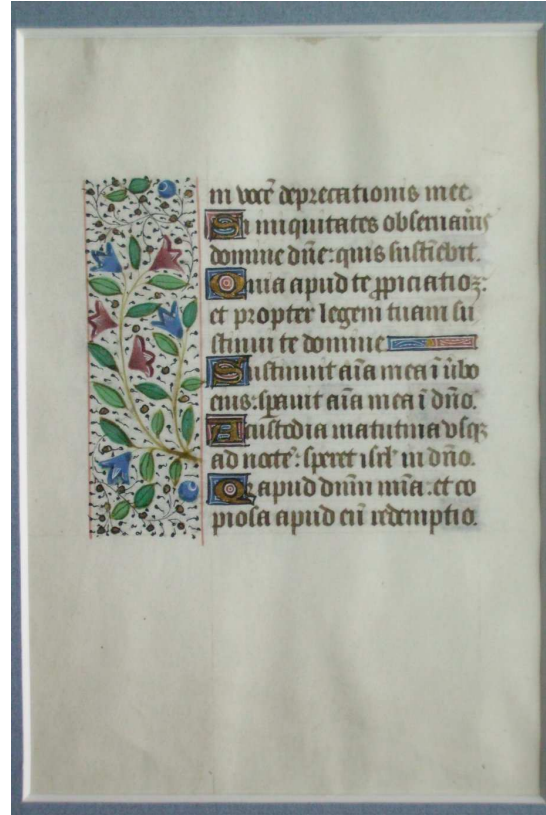 in vocē deprecationis mee.
Si iniquitates obseruaūis
domine dn̄e: quis sustīebit.
Quia apud te ꝓpiciatioꝫ:
et propter legem tuam su
stinui te domine
Sustinuit aīa mea ī ūbo
eius: sꝑauit aīa mea ī dn̄o.
A custodia matutina vsqꝫ
ad noctē: speret isrl̄ in dn̄o.
Qꝛ apud dnm̄ mīa. et co
piosa apud eū redemptio.